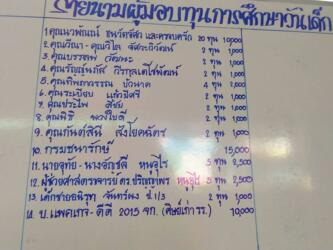 รายนามผู้มอบทุนการศึกษาวันเด็ก
1.คุณนวพัฒน์ และครอบครัว 20 ทุน 10,000
2.คุณวีณา - คุณวิไล 2 ทุน 1,000
3.คุณบรรพต วัฒนะ 2 ทุน 1,000
4.คุณธัญนันภัส 2 ทุน 1,000
5.คุณทิพภาวรรณ บัวนาค 4 ทุน 2,000
6.คุณระเบียบ แก้วมีศรี 2 ทุน 1,000
7.คุณประไพ 2 ทุน 1,000
8.คุณนิธิ พวงใบดี 2 ทุน 1,000
9.คุณกันต์สินี สังโยคฉัตร 2 ทุน 1,000
10.กรมธนารักษ์ 15,000
11.นายอุทัย - นางอัญชลี หนูอุไร 5 ทุน 2,500
12.ผู้ช่วยศาสตราจารย์ ดร.ปริญญาพร หนูอุไร 5 ทุน 2,500
13.เด็กชายอนิรุท จันทร์นง ป.1/3 2 ทุน 1,000
14.บ.แพคเกจ-ดีดี 2015 จก.(ศิษย์เก่า รร.) 10,000